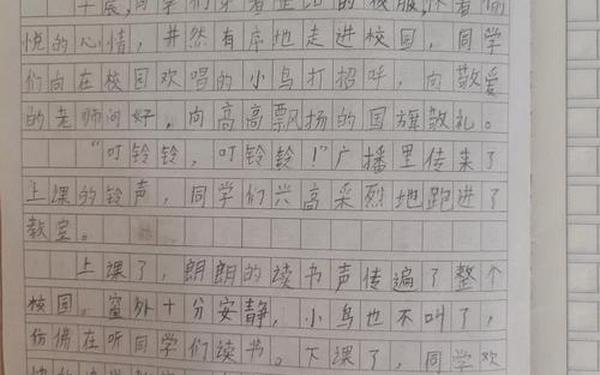 早晨,同学们穿着整洁的校服,怀着愉
悦的心情,井然有序地走进校园,同学
们向在校园欢唱的小鸟打招呼,向敬爱
的老师问好,向高高飘扬的国旗敬礼。
“叮铃铃,叮铃铃!”广播里传来了
上课的铃声,同学们兴高采烈地跑进了
教室。
上课了,朗朗的读书声传遍了整个
校园。窗外十分安静,小鸟也不叫了,
仿佛在听同学们读书。下课了,同学欢